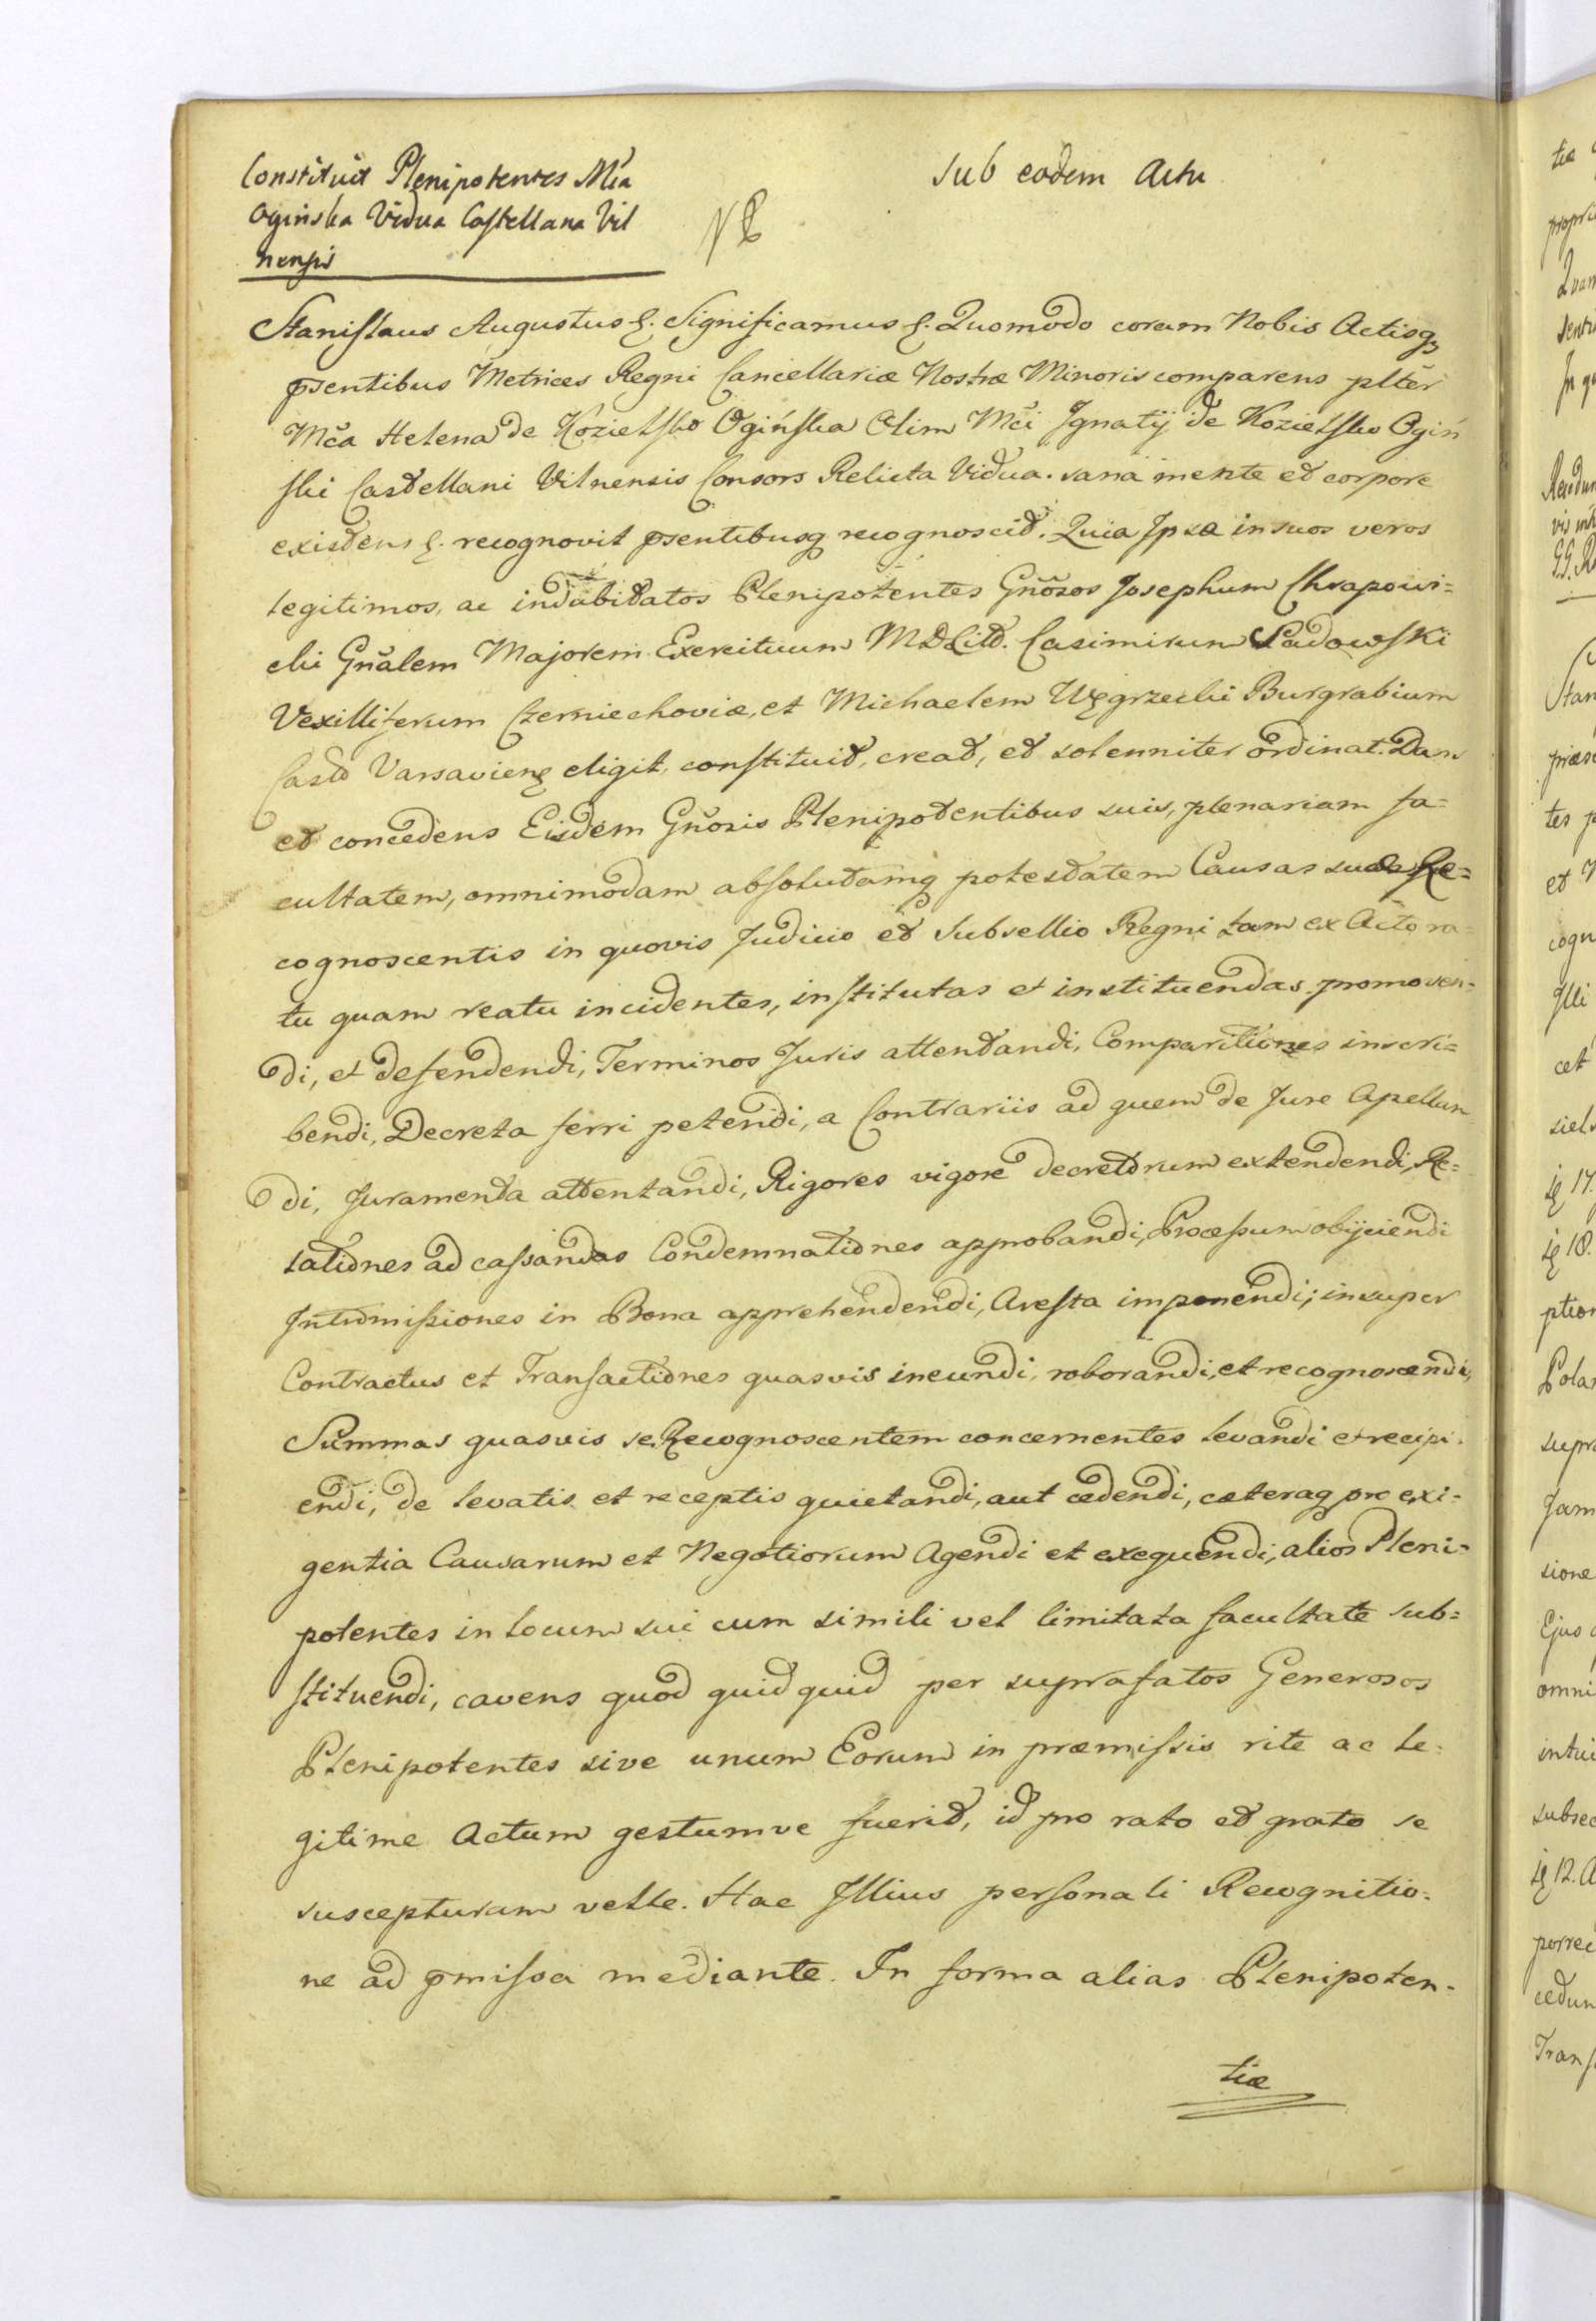 Constituit Plenipotentes Mca
Ogińska Vidua Castellana Vil
nensis
Sub eodem Actu
NB
Stanislaus Augustus &. Significamus &. Quomodo coram Nobis Actisq
pñsentibus Metrices Regni Cancellariæ Nostræ Minoris comparens plter
Mca Helena de Kozielsko Ogińska Olim Mci Ignatij de Kozielsko Ogiń
ski Castellani Vilnensis Consors Relicta Vidua. sana mente et corpore
existens &. recognovit psentibusq recognoscit. Quia Ipsa in suos veros
legitimos, ac indubitatos Plenipotentes Gnosos Josephum Chrapowi=
cki Gnalem Majorem Exercituum MDLitt. Casimirum Sadowski
Vexilliferum Czerniechoviæ, et Michaelem Węgrzecki Burgrabium
Castr Varsavien eligit, constituit, creat, et solenniter ordinat. Dans
et concedens Eisdem Gnosis Plenipotentibus suis, plenariam fa=
cultatem, omnimodam absolutamq potestatem Causas suas Re=
cognoscentis in quovis Judicio et Subsellio Regni tam ex Actora=
tu quam reatu incidentes, institutas et instituendas promoven=
di, et defendendi, Terminos Juris attentandi, Comparitiones inscri=
bendi, Decreta ferri petendi, a Contrariis ad quem de Jure Apellan
di, Juramenta attentandi, Rigores vigore decretorum extendendi, Re=
lationes ad cassandas Condemnationes approbandi, Processum obijciendi
Intromissiones in Bona apprehendendi, Aresta imponendi; insuper
Contractus et Transactiones quasvis ineundi, roborandi, et recognoscendi,
Summas quasvis se Recognoscentem concernentes levandi et recipi=
endi, de levatis et receptis quietandi, aut cedendi, cæteraq pro exi=
gentia Causarum et Negotiorum Agendi et exequendi, alios Pleni=
potentes in locum sui cum simili vel limitata facultate sub=
stituendi, cavens quod quidquid per suprafatos Generosos
Plenipotentes sive unum Eorum in præmissis rite ac le=
gitime Actum gestumve fuerit, id pro rato et grato se
suscepturam velle. Hac Illius personali Recognitio=
ne ad pmissa mediante. In forma alias Plenipoten=
tiæ